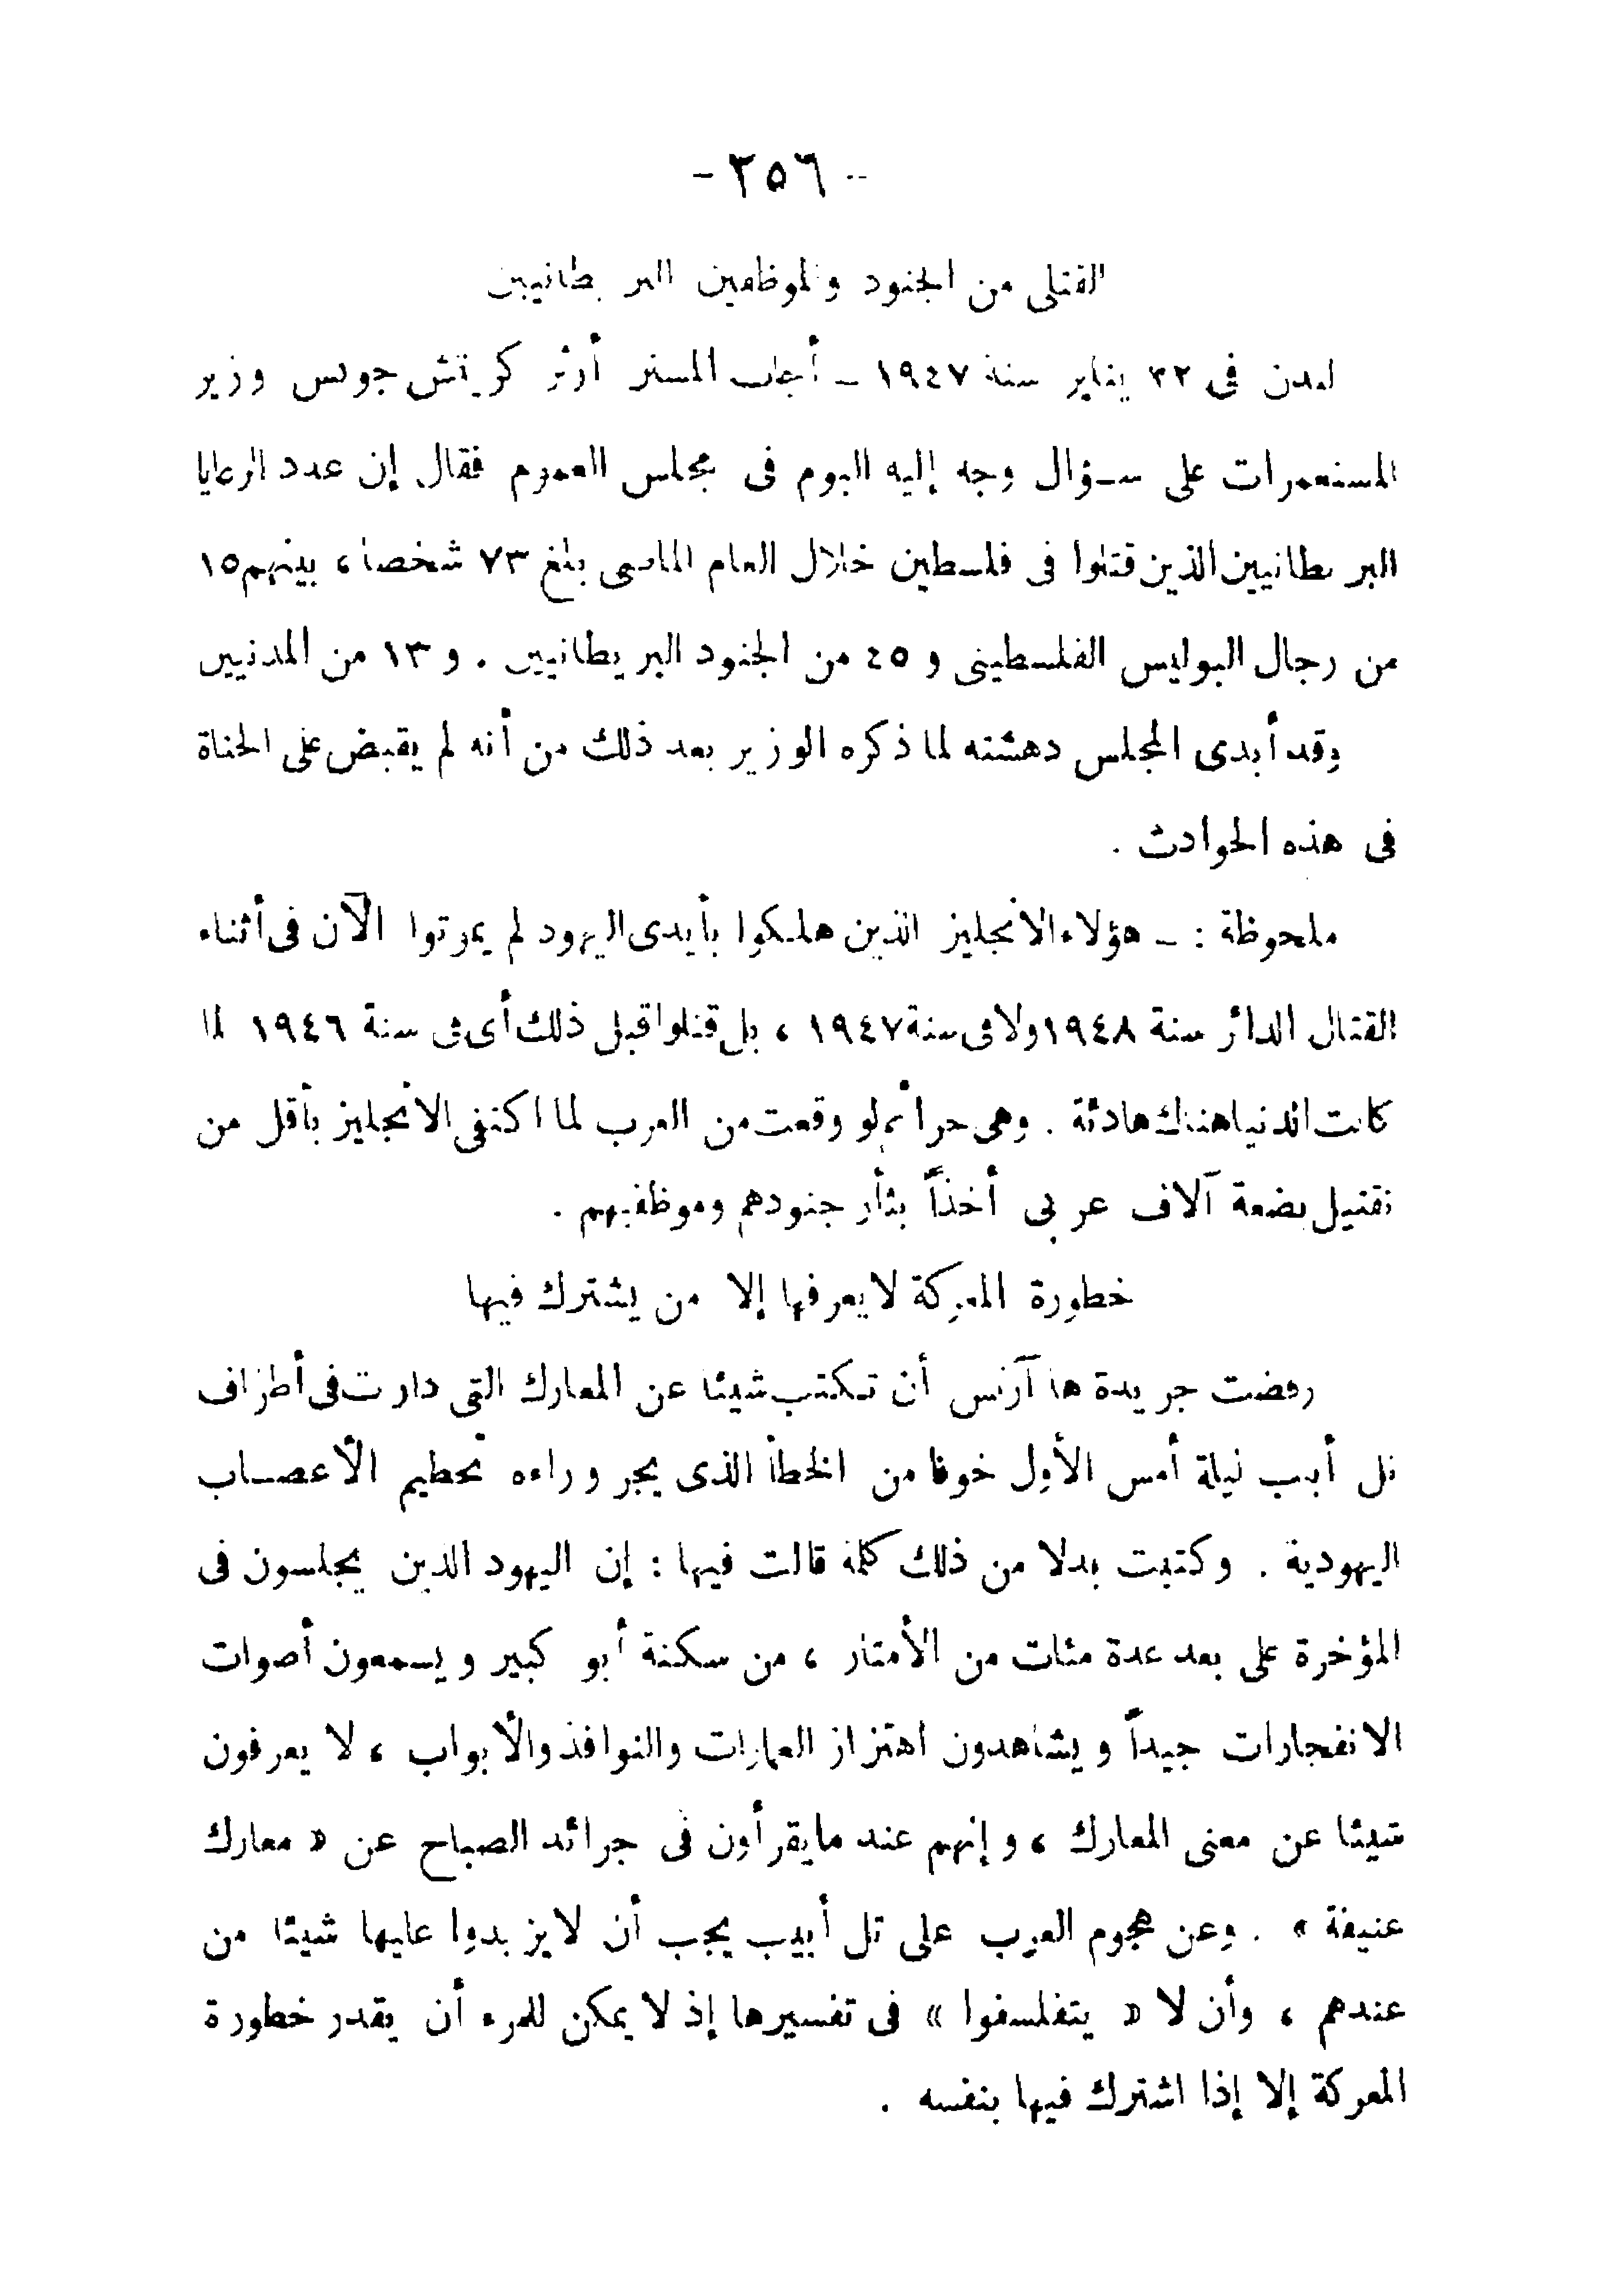 - ٢٥٦ -
القتلى من الجنود والموظفين البريطانيين
لندن فى ٢٢ يناير سنة ١٩٤٧ ــ أجاب المستر أرثر كريتش جونس وزير
المستعمرات على سؤال وجه إليه اليوم فى مجلس العموم فقال إن عدد الرعايا
البريطانيين الذين قتلوا فى فلسطين خلال العام الماضى بلغ ٧٣ شخصا ، بينهم ١٥
من رجال البوليس الفلسطينى و ٤٥ من الجنود البريطانيين . و ١٣ من المدنيين
وقد أبدى المجلس دهشته لما ذكره الوزير بعد ذلك من أنه لم يقبض على الجناة
فى هذه الحوادث .
ملحوظة : ــ هؤلاء الانجليز الذين هلكوا بأيدى اليهود لم يموتوا الآن فى أثناء
القتال الدائر سنة ١٩٤٨ ولا فى سنة ١٩٤٧ ، بل قتلوا قبل ذلك أى فى سنة ١٩٤٦ لما
كانت الدنيا هناك هادئة . وهى جرائم لو وقعت من العرب لما اكتفى الانجليز بأقل من
تقتيل بضعة آلاف عربى أخذاً بثأر جنودهم وموظفيهم .
خطورة المعركة لا يعرفها إلا من يشترك فيها
رفضت جريدة هاآرتس أن تكتب شيئا عن المعارك التى دارت فى أطراف
تل أبيب ليلة أمس الأول خوفا من الخطأ الذى يجر وراءه تحطيم الأعصاب
اليهودية . وكتبت بدلا من ذلك كلمة قالت فيها : إن اليهود الذين يجلسون فى
المؤخرة على بعد عدة مئات من الأمتار ، من سكنة أبو كبير ويسمعون أصوات
الانفجارات جيداً ويشاهدون اهتزاز العمارات والنوافذ والأبواب ، لا يعرفون
شيئا عن معنى المعارك ، وإنهم عند ما يقرأون فى جرائد الصباح عن « معارك
عنيفة » . وعن هجوم العرب على تل أبيب يجب أن لا يزيدوا عليها شيئا من
عندهم ، وأن لا « يتفلسفوا » فى تفسيرها إذ لا يمكن للمرء أن يقدر خطورة
المعركة إلا إذا اشترك فيها بنفسه .